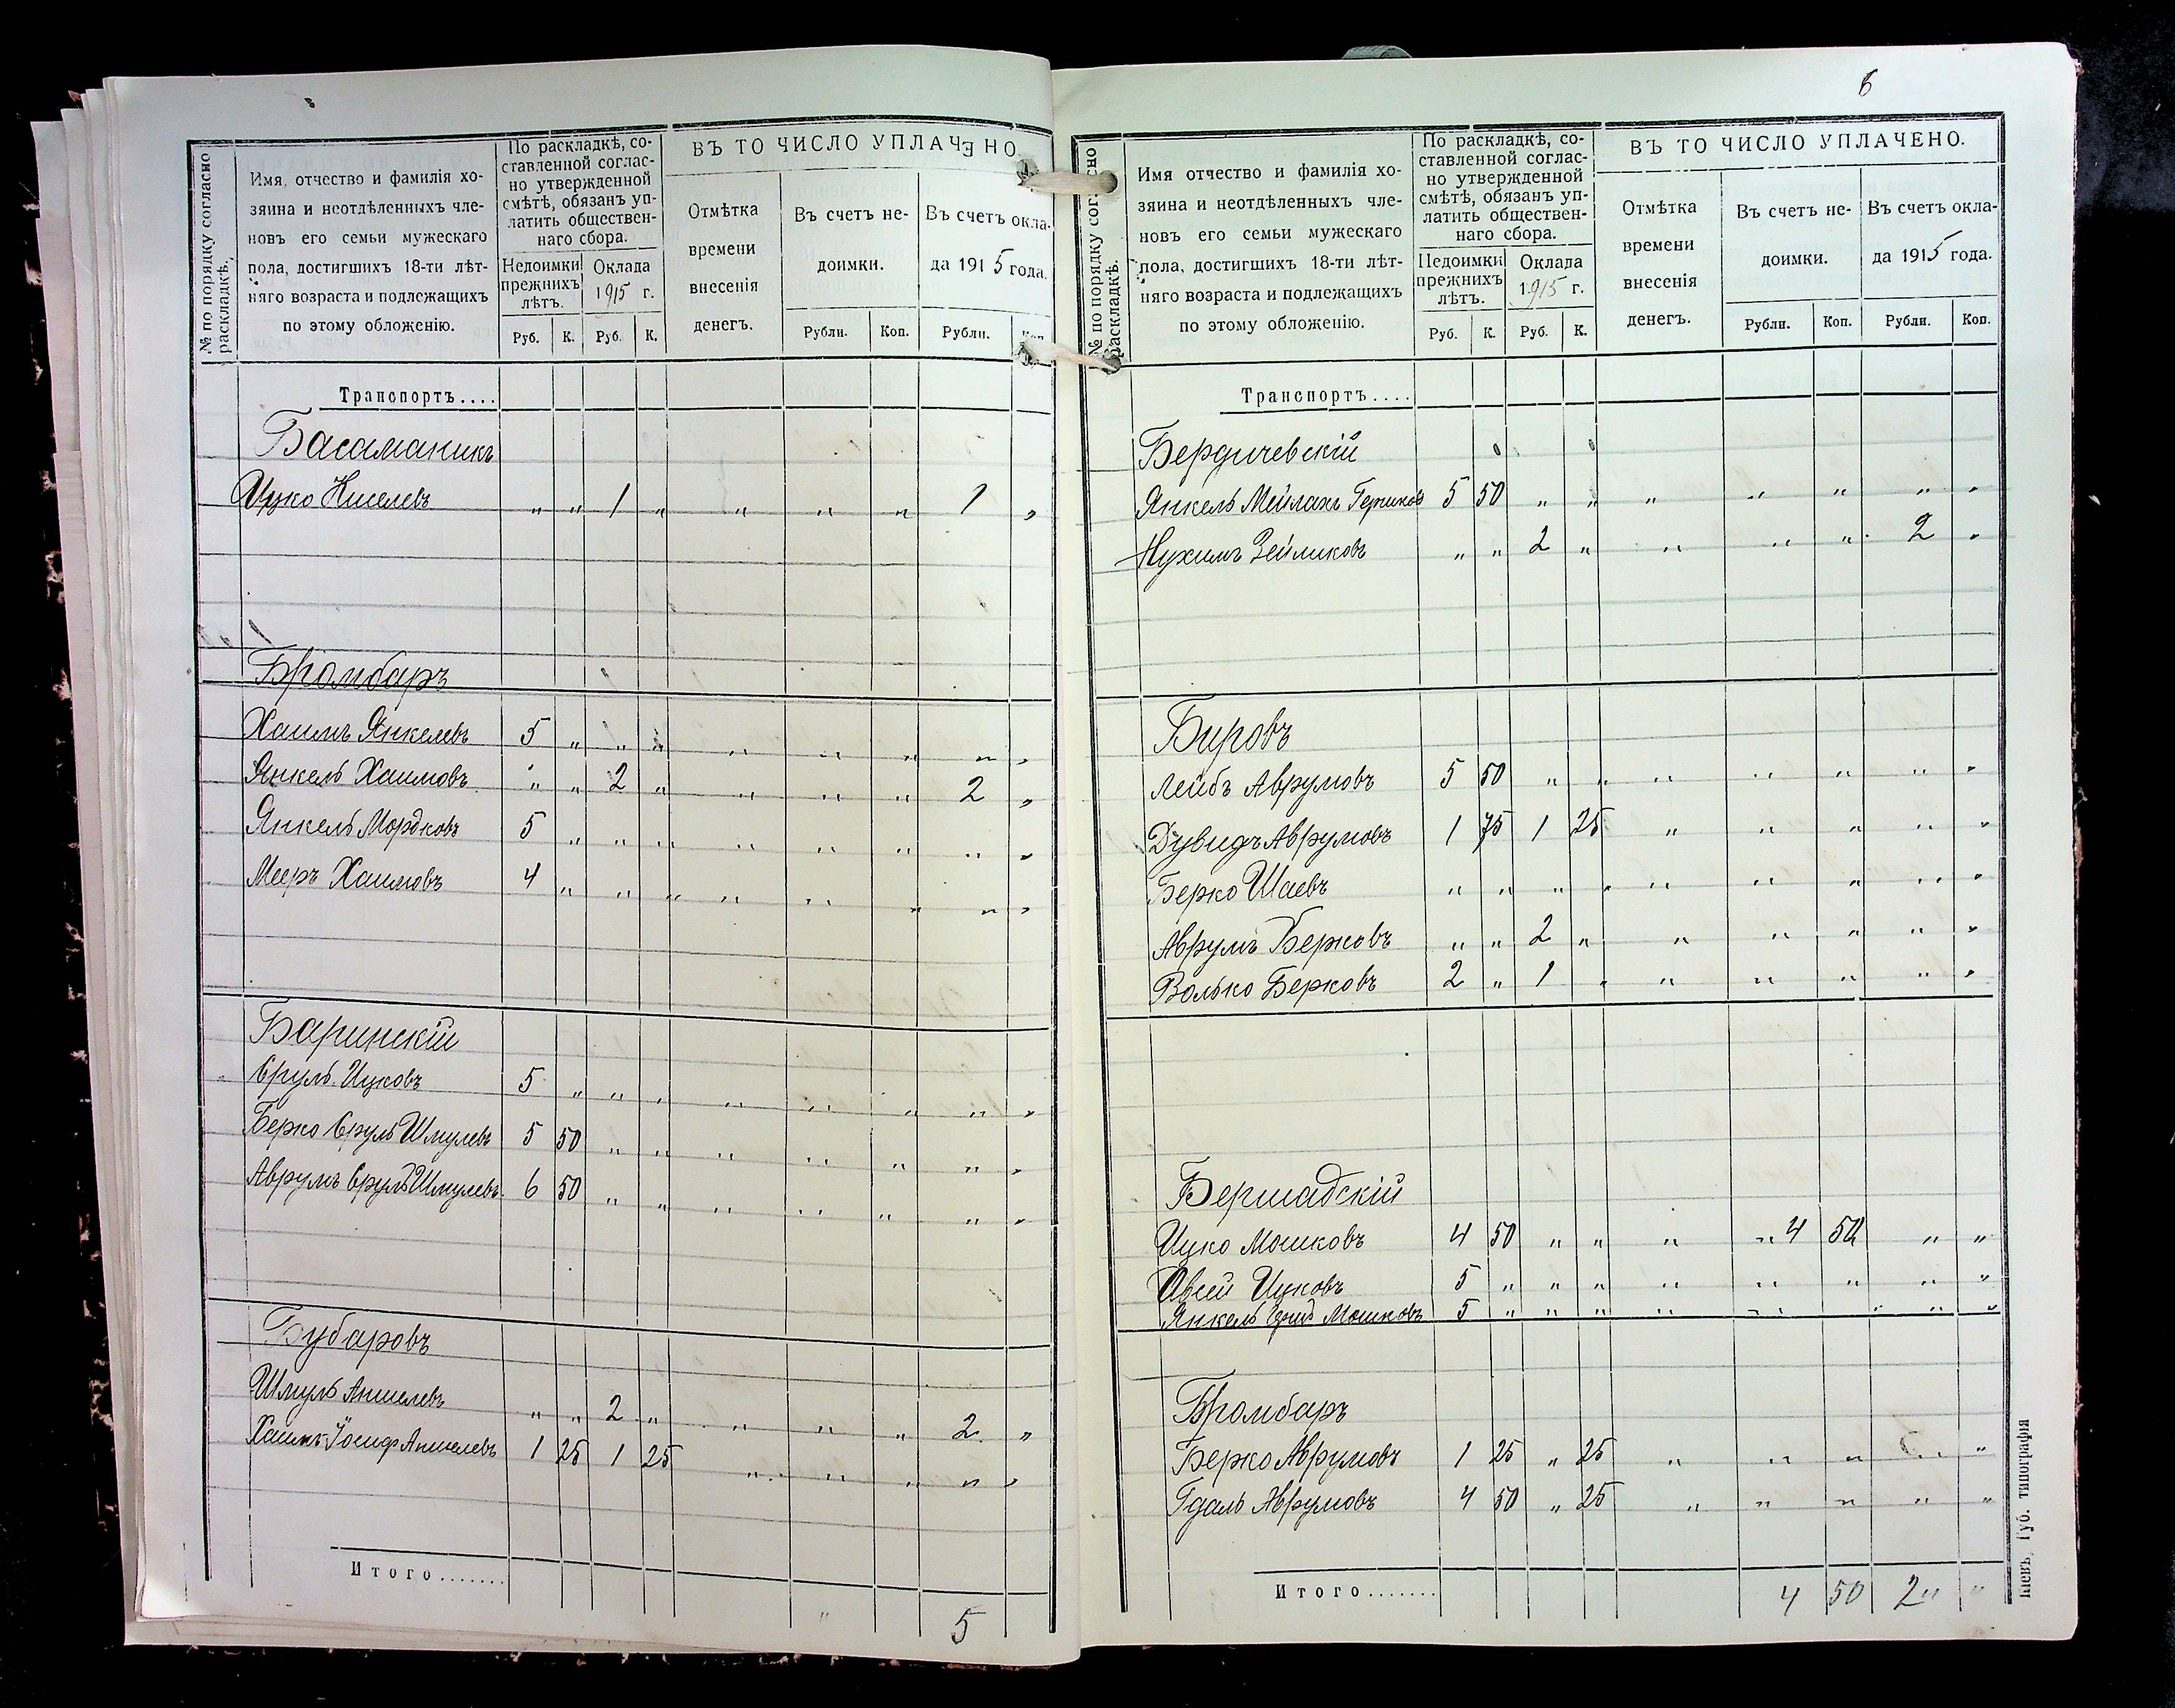 6
№ по порядку согласно раскладкѣ.
Имя, отчество и фамилія хо-
зяина и неотдѣленныхъ чле-
новъ его семьи мужескаго
пола, достигшихъ 18-ти лѣт-
няго возраста и подлежащихъ
по этому обложенію.
По раскладкѣ, со-
ставленной соглас-
но утвержденной
смѣтѣ, обязанъ уп-
латить обществен-
наго сбора.
Недоимки
прежнихъ
лѣтъ.
Оклада
1915 г.
Руб. К. Руб. К.
ВЪ ТО ЧИСЛО УПЛАЧЕНО.
Отмѣтка
времени
внесенія
денегъ.
Въ счетъ не-
доимки.
Рубли. Коп.
Въ счетъ окла-
да 1915 года.
Рубли. Коп.
Транспортъ....
Басаманикъ
Ицко Киселевъ " " 1 " " " " 1 "
Бромбаръ
Хаимъ Янкелевъ 5 " " " " " " " "
Янкель Хаимовъ " " 2 " " " " 2 "
Янкель Мордковъ 5 " " " " " " " "
Мееръ Хаимовъ 4 " " " " " " " "
Баринскій
Сруль Ицковъ 5 " " " " " " " "
Берко Сруль Шмулевъ 5 50 " " " " " " "
Аврумъ Сруль Шмулевъ 6 50 " " " " " " "
Бубаровъ
Шмуль Аншелевъ " " 2 " " " " 2 "
Хаимъ Іосифъ Аншелевъ 1 25 1 25 " " " " "
Итого.......
" 5
№ по порядку согласно раскладкѣ.
Имя отчество и фамилія хо-
зяина и неотдѣленныхъ чле-
новъ его семьи мужескаго
пола, достигшихъ 18-ти лѣт-
няго возраста и подлежащихъ
по этому обложенію.
По раскладкѣ, со-
ставленной соглас-
но утвержденной
смѣтѣ, обязанъ уп-
латить обществен-
наго сбора.
Недоимки
прежнихъ
лѣтъ.
Оклада
1915 г.
Руб. К. Руб. К.
ВЪ ТО ЧИСЛО УПЛАЧЕНО.
Отмѣтка
времени
внесенія
денегъ.
Въ счетъ не-
доимки.
Рубли. Коп.
Въ счетъ окла-
да 1915 года.
Рубли. Коп.
Транспортъ....
Бердичевскій
Янкель Мейлахъ 5 50 " " " " " " "
Нухимъ Зейликовъ " " 2 " " " " 2 "
Бировъ
Лейбъ Аврумовъ 5 50 " " " " " " "
Дувидъ Аврумовъ 1 75 1 25 " " " " "
Берко Шаевъ " " " " " " " " "
Аврумъ Берковъ " " 2 " " " " " "
Волько Берковъ 2 " 1 " " " " " "
Бершадскій
Ицко Мошковъ 4 50 " " " " 4 50 " "
Овсей Ицковъ 5 " " " " " " " "
Янкель Мошковъ 5 " " " " " " " "
Бромбаръ
Берко Аврумовъ 1 25 " 25 " " " " "
Гдаль Аврумовъ 4 50 " 25 " " " " "
Итого.......
4 50 2 " "
Кіевъ, Губ. типографія